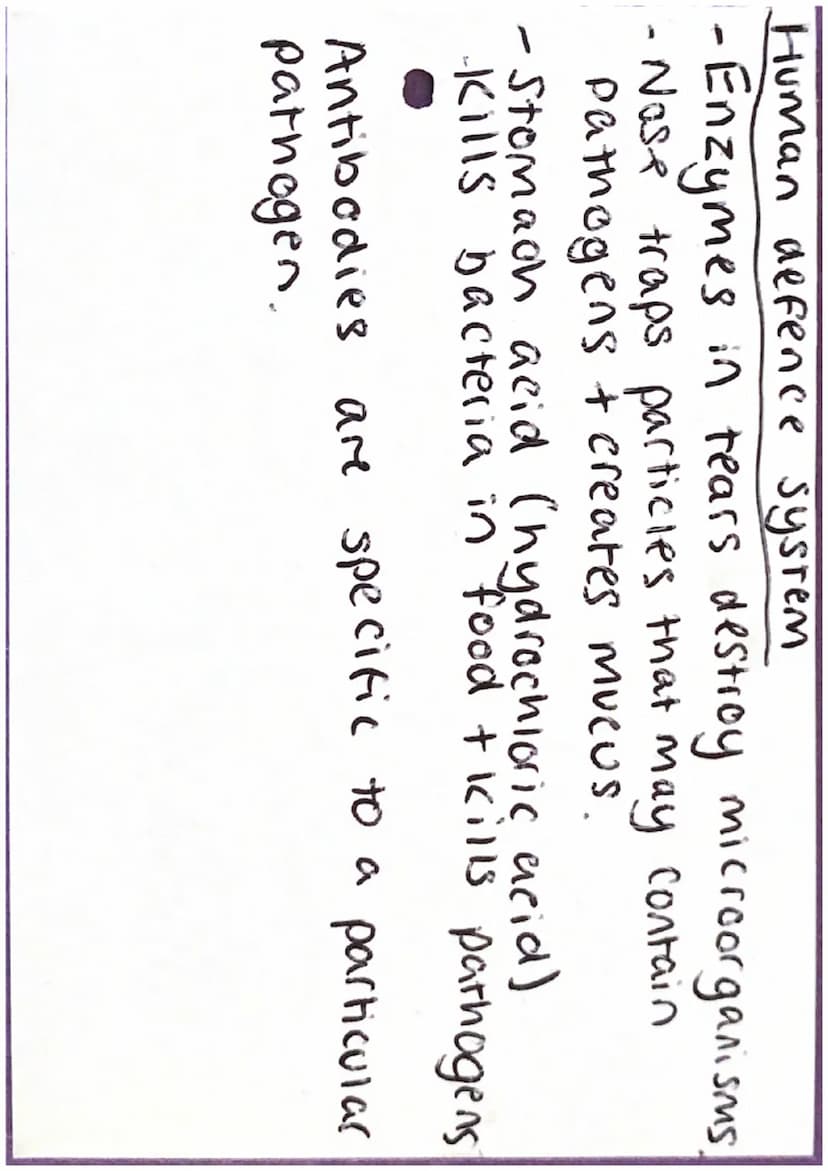 Human defence system
- Enzymes in tears destroy microorganisms.
- Nose traps particles that may contain
pathogens + creates mucus.
- Stomach acid (hydrochloric acid)
kills bacteria in food + kills pathogens
Antibodies are specific to a particular
pathogen.